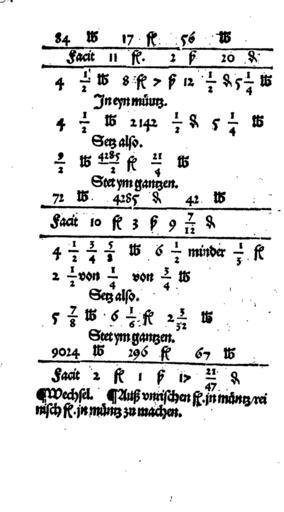 84 ℔ 17 fl 56 ℔
Facit 11 fl. 2 ß 20 ₰
4 1/2 ℔ 8 fl 7 ß 12 1/2 ₰ 5 1/4 ℔
In eyn müntz.
4 1/2 ℔ 2142 1/2 ₰ 5 1/4 ℔
Setz also.
9/2 ℔ 4285/2 fl 21/4 ℔
Stet ym gantzen.
72 ℔ 4285 ₰ 42 ℔
Facit 10 fl 3 ß 9 7/12 ₰
4 1/2 3/4 5/8 ℔ 6 1/2 minder 1/3 fl
2 1/2 von 1/4 von 3/4 ℔
Setz also.
5 7/8 ℔ 6 1/6 fl 2 3/32 ℔
Stet ym gantzen.
9024 ℔ 296 fl 67 ℔
Facit 2 fl 1 ß 17 21/47 ₰
¶Wechsel. ¶Auß vnrischen fl. in müntz/rei
nisch fl. in müntz zu machen.